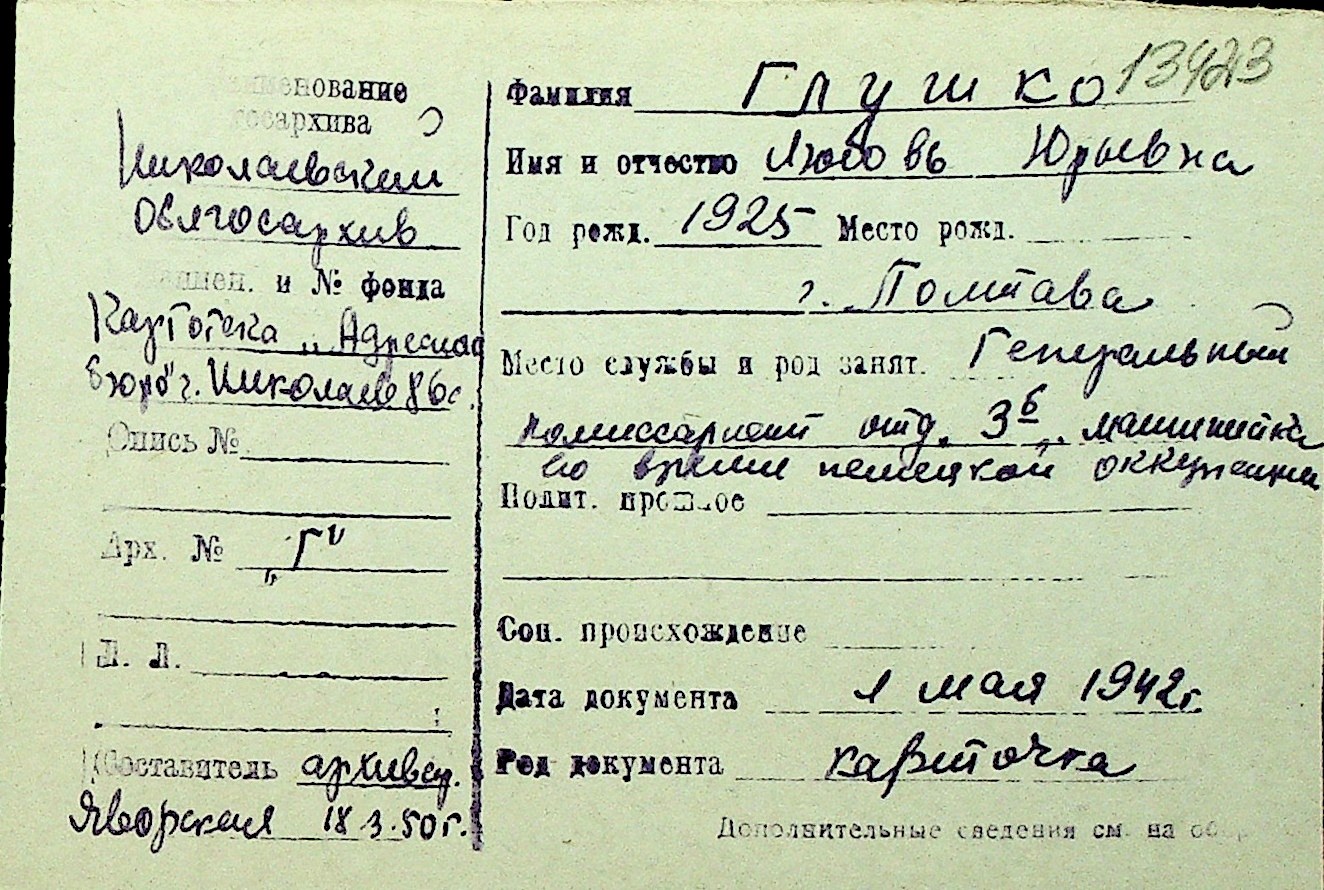 Наименование
госархива
Николаевский
Облгосархив
Наимен. и № фонда
Картотека „Адресное
бюро" г. Николаев
Опись №
Арх. № „Г"
Л. Л.
Составитель архивар.
Яворская 18.3.50 г.
13423
Фамилия Глушко
Имя и отчество Любовь Юрьевна
Год рожд. 1925 Место рожд.
г. Полтава
Место службы и род занят. Генеральный
комиссариат отд. 3б машинистка
во время немецкой оккупации
Полит. прошлое
Соц. происхождение
Дата документа 1 мая 1942 г.
Род документа карточка
Дополнительные сведения см. на об